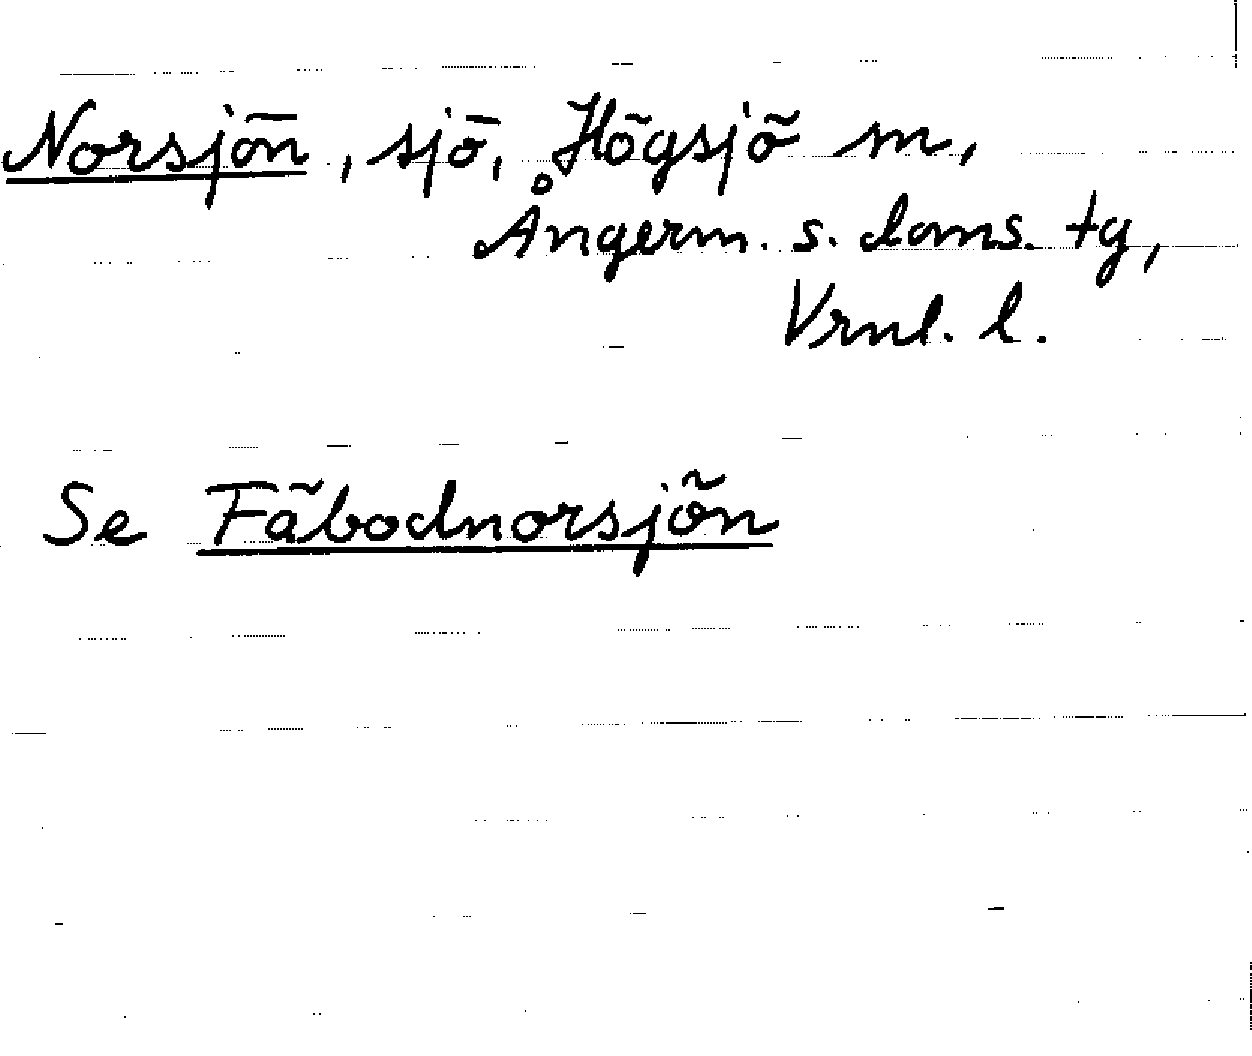 Norsjön, sjö, Högsjö sn,
Ångerm. s. doms. tg,
Vrnl. l.
Se Fäbodnorsjön